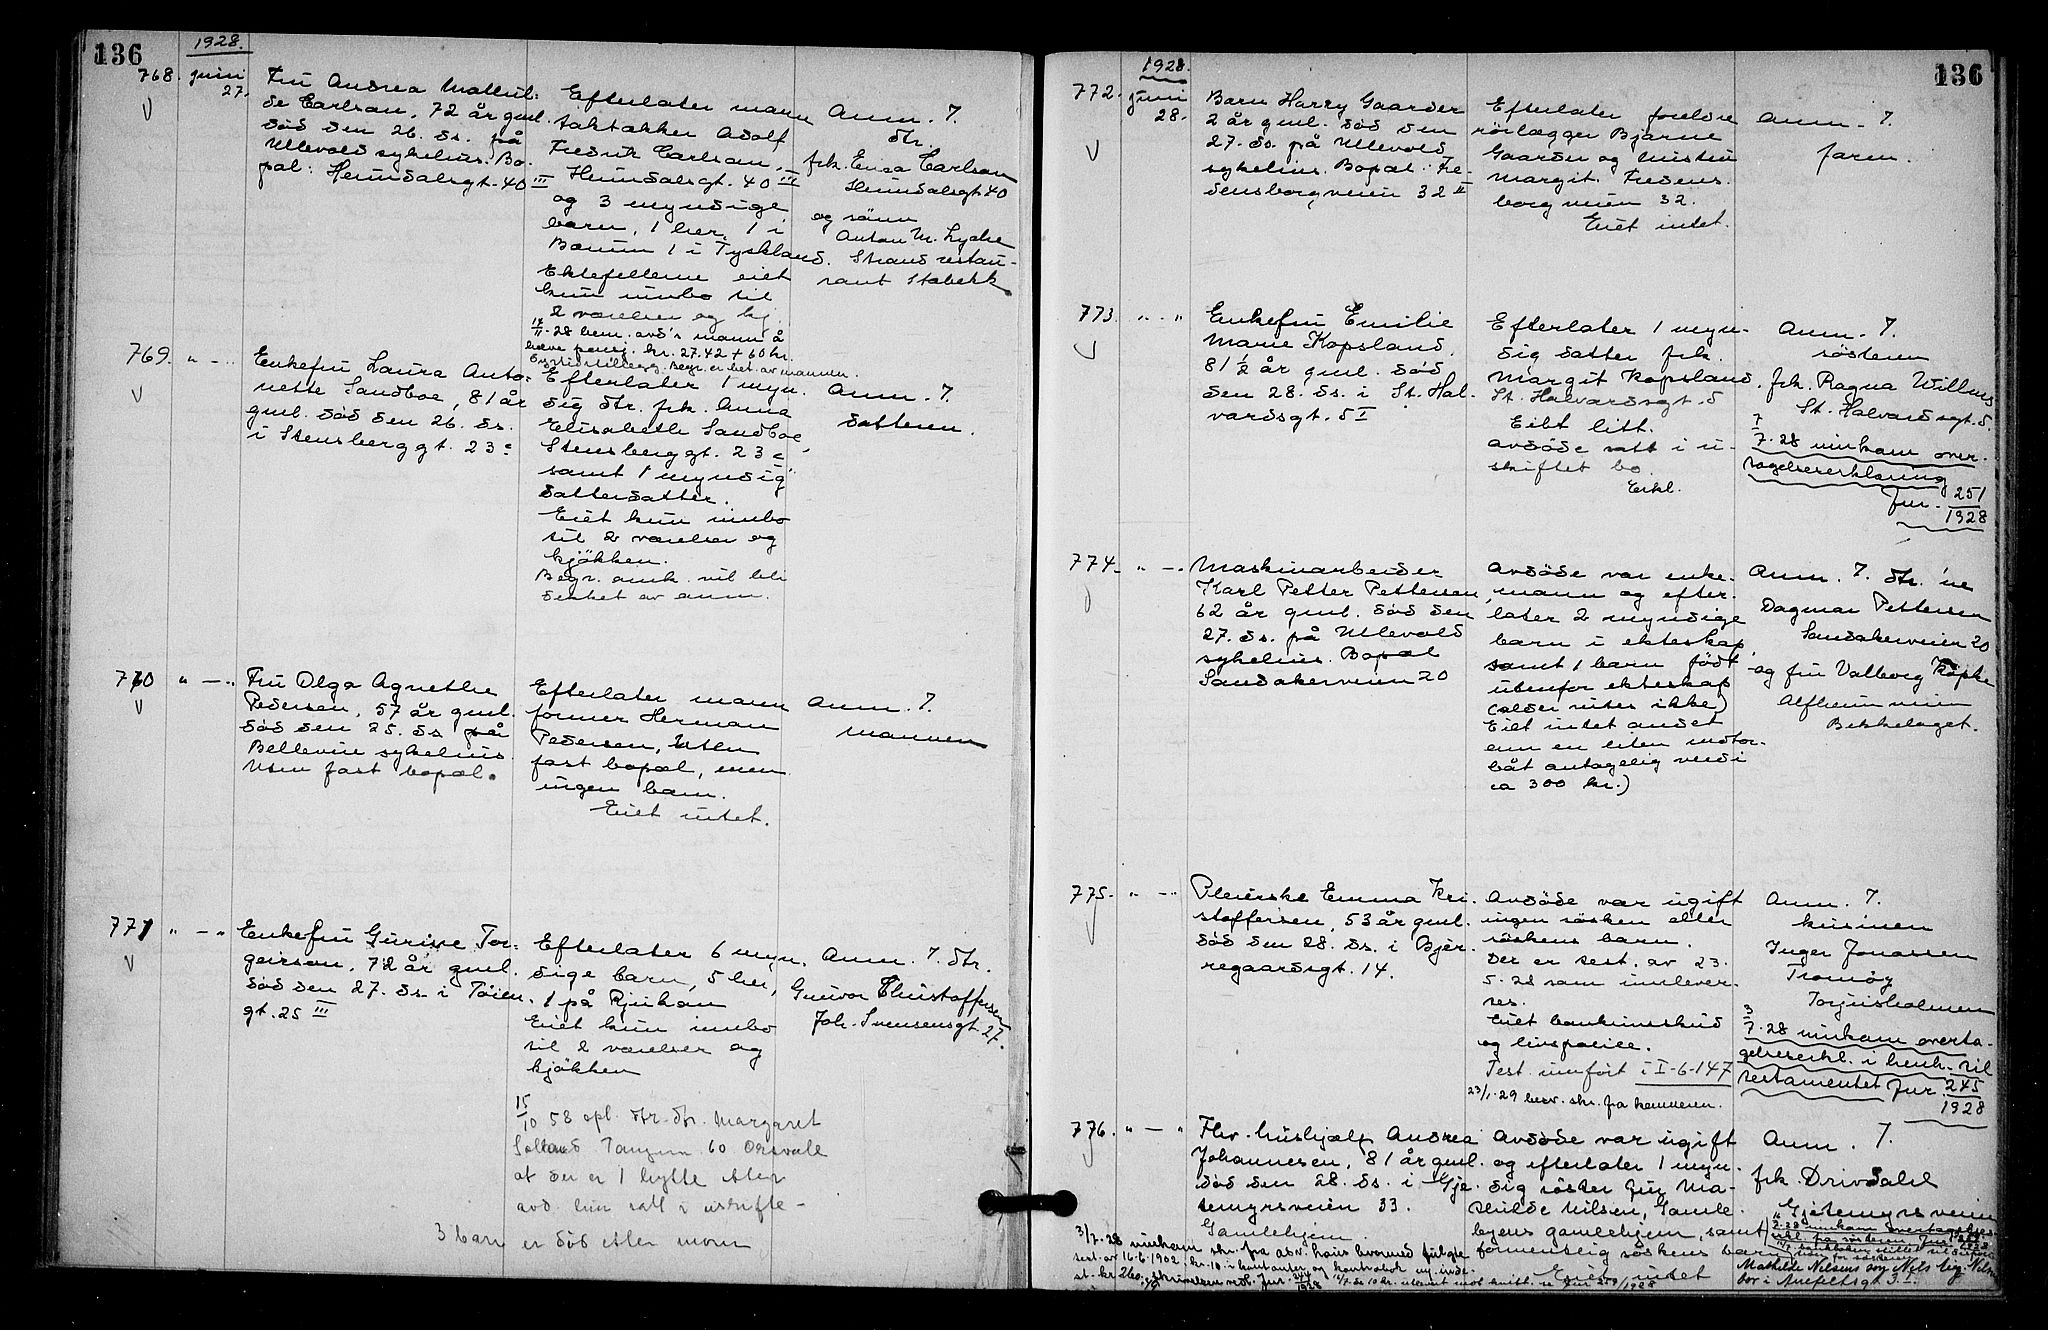 136
1928.
768. juni 27.
Fru Andrea Mathil-
de Carlson, 72 år gml.
död den 26. ds. på
Ullevold sykehus. Bo-
pæl: Heimdalsgt. 40 III
Efterlater mann
taktækker Adolf
Fredrik Carlson,
Heimdalsgt. 40 III
og 3 myndige
barn, 1 her, 1 i
Bærum 1 i Tyskland.
Ektefellene eiet
kun innbo til
2 værelser og kj.
hæve pensj. kr. 27.42 + 60 kr.
Begr. er bet. av mannen.
Anm. 7.
dtr.
frk. Erica Carlson
Heimdalsgt 40
og sönn
Anton M. Lycke
Strand restau-
rant Stabekk.
769. " - "
Enkefru Laura Anto-
nette Sandboe, 81 år
gml. död den 26. ds.
i Stensberggt. 23 c
Efterlater 1 myn-
dig dtr. frk. Anna
Elisabeth Sandboe,
Stensberggt. 23 c
samt 1 myndig
datterdatter.
Eiet kun innbo
til 2 værelser og
kjökken.
Begr. omk. vil bli
dekket av anm.
Anm. 7.
datteren.
770 " - "
Fru Olga Agnethe
Pedersen, 57 år gml.
död den 25. ds på
Bellevue sykehus.
Uten fast bopæl.
Efterlater mann
former Herman
Pedersen, uten
fast bopæl, men
ingen barn.
Eiet intet.
Anm. 7.
mannen
771 " - "
Enkefru Gurine Tor-
geirson, 72 år gml.
död den 27. ds. i Töien-
gt. 25 III
Efterlater 6 myn-
dige barn, 5 her,
1 på Rjukan
Eiet kun innbo
til 2 værelser og
kjökken
15/10 58 opl. dtr. dtr. Margaret
at der er 1 hytte etter
avd. hun satt i uskifte -
3 barn er död etter moren
Anm. 7. dtr.
Gunvor Christoffersen
Joh. Svensensgt. 27.
136
1928.
772. juni 28.
Barn Harry Gaarder
2 år gml. död den
27. ds. på Ullevold
sykehus. Bopæl: Fre-
densborgveien 32 II
Efterlater foreldre
rörlægger Bjarne
Gaarder og hustru
Margit. Fredens-
borgveien 32.
Eiet intet.
Anm. 7.
faren.
773. " - "
Enkefru Emilie
Marie Kopsland,
81 1/2 år gml. död
den 28. ds. i St. Hal-
vardsgt. 5 I
Efterlater 1 myn-
dig datter frk.
Margit Kopsland,
St. Halvardsgt. 5
Eiet litt.
avdöde satt i u-
skiftet bo.
Erkl.
Anm. 7.
söstern
frk. Ragna Willms
St. Halvardsgt. 5.
7/7.28 innkom over-
tagelseserklæring
Jnr. 251/1928
774. " - "
Maskinarbeider
Karl Petter Pettersen,
62 år gml. död den
27. ds. på Ullevold
sykehus. Bopæl
Sandakerveien 20
Avdöde var enke-
mann og efter-
later 2 myndige
barn i ekteskap,
samt 1 barn födt
utenfor ekteskap
(alder vites ikke)
Eiet intet andet
enn en liten motor-
båt antagelig verdi
ca 300 kr.)
Anm. 7. dtr. 'ne
Dagmar Pettersen
Sandakerveien 20
og fru Valborg Köpke
Alfheimveien
Bekkelaget.
775. " - "
Pleierske Emma Kri-
stoffersen, 53 år gml.
död den 28. ds. i Bjer-
regaardsgt. 14.
Avdöde var ugift
ingen sösken eller
söskens barn.
Der er test. av 23.
5.28 som innlever-
res.
Eiet bankinnskud
og livspolice.
Test. innfört i I-6-147
23/1.29 besv. skr. fra kemneren.
Anm. 7.
kusinen
Inger Jonassen
Tromöy
Torjusholmen
3/7.28 innkom overta-
gelseserkl. i henh. til
testamentet Jnr. 245/1928
776. " - "
Fhv. hushjælp Andrea
Johannesen, 81 år gml.
död den 28. ds. i Gje-
temyrsveien 33.
Gamlehjem.
Avdöde var ugift
og efterlater 1 myn-
dig söster Guy Ma-
thilde Nilsen, Gamle-
byens gamlehjem, samt
formentlig söskens barn
Eiet intet
Anm. 7.
frk. Drivdahl
Gjetemyrsveien
3/7.28 innkom skr. fra adv. Lous hvormed fulgte
test. av 16-6-1902. kr. 10 i kontanter og kontrabok
Mathilde Nilsens søn Nils
bor i Anfeltsgt 3. I.